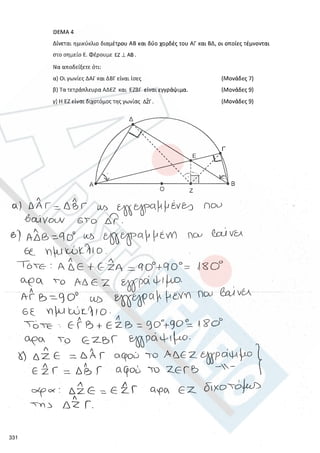 ΘΕΜΑ 4
Δίνεται ημικύκλιο διαμέτρου ΑΒ και δύο χορδές του ΑΓ και ΒΔ, οι οποίες τέμνονται
στο σημείο Ε. Φέρουμε ΕΖ ⊥ ΑΒ.
Να αποδείξετε ότι:
α) Οι γωνίες ΔΑΓ και ΔΒΓ είναι ίσες (Μονάδες 7)
β) Τα τετράπλευρα ΑΔΕΖ και ΕΖΒΓ είναι εγγράψιμα. (Μονάδες 9)
γ) Η ΕΖ είναι διχοτόμος της γωνίας ΔΖ̂Γ. (Μονάδες 9)
Δ
Γ
Ε
Α
Ο
Ζ
Β
α) ΔÂΓ = ΔB̂Γ ως εγγεγραμμένες που
βαίνουν στο ΔΓ.
β) ΑΔ̂Β=90° ως εγγεγραμμένη που βαίνει
σε ημικύκλιο.
Τότε: ΑΔ̂Ε + ΕẐΑ = 90°+90° = 180°
αρα το ΑΔΕΖ εγγράψιμο.
ΑΓ̂Β=90° ως εγγεγραμμένη που βαίνει
σε ημικύκλιο.
Τότε: ΕΓ̂Β + ΕẐΒ = 90°+90° = 180°
αρα το ΕΖΒΓ εγγράψιμο.
γ) ΔẐΕ = ΔÂΓ αφού το ΑΔΕΖ εγγράψιμο
ΕẐΓ = ΔB̂Γ αφού το ΖΕΓΒ -//-
αρα: ΔẐΕ = ΕẐΓ αρα ΕΖ διχοτόμος
της ΔẐΓ.
331